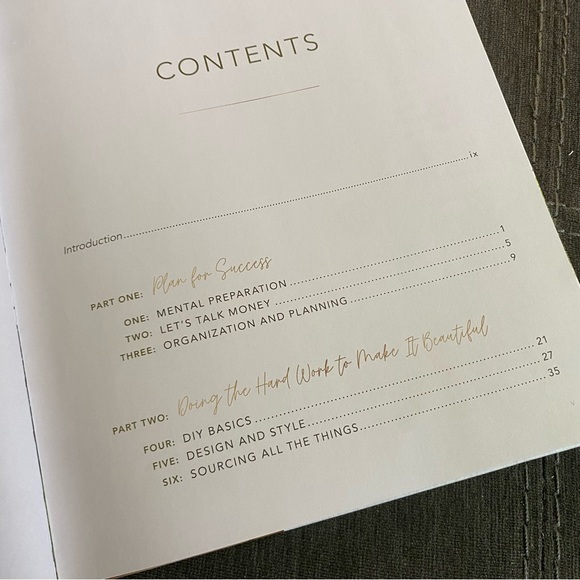 CONTENTS
Introduction........................................................................ix
PART ONE: Plan for Success
ONE: MENTAL PREPARATION.............................................1
TWO: LET'S TALK MONEY.................................................5
THREE: ORGANIZATION AND PLANNING...................................9
PART TWO: Doing the Hard Work to Make It Beautiful
FOUR: DIY BASICS..........................................................21
FIVE: DESIGN AND STYLE..................................................27
SIX: SOURCING ALL THE THINGS.........................................35